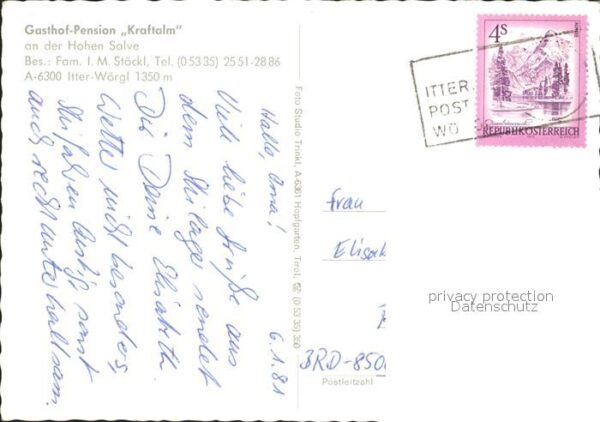 Gasthof-Pension „Kraftalm“
an der Hohen Salve
Bes.: Fam. I. M. Stöckl, Tel. (0 53 35) 25 51-28 86
A-6300 Itter-Wörgl 1350 m
6.1.81
Hallo, Oma!
Viele liebe Grüße aus
dem Skilager sendet
Dir Deine Elisabeth.
Wetter nicht besonders,
Skifahren lustig, sonst
auch recht unterhaltsam.
Foto Studio Trinkl, A-6361 Hopfgarten, Tirol, ☎ (0 53 35) 350
4s
REPUBLIK ÖSTERREICH
ITTER,
POST
WÖ
Frau
Elisab
privacy protection
Datenschutz
BRD-850
Postleitzahl